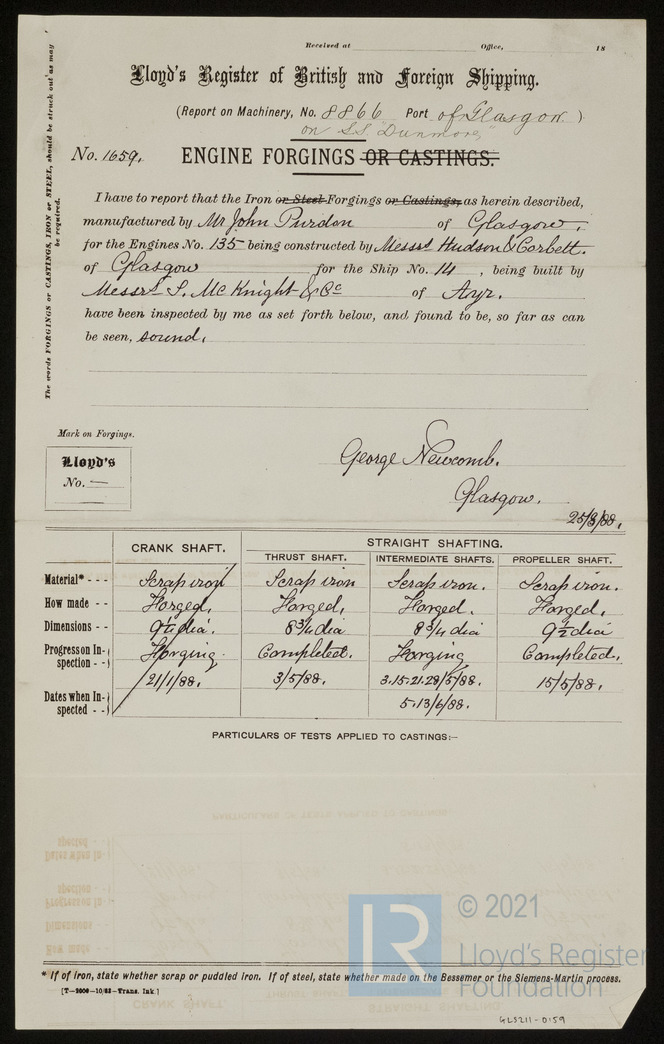 Received at Office, 18
Lloyd's Register of British and Foreign Shipping.
(Report on Machinery, No. 8866 Port of Glasgow.)
on S.S. "Dunmore"
No. 1659. ENGINE FORGINGS OR CASTINGS.
I have to report that the Iron or Steel Forgings or Castings, as herein described,
manufactured by Mr John Purdon of Glasgow,
for the Engines No. 135 being constructed by Messrs Hudson & Corbett.
of Glasgow for the Ship No. 14, being built by
Messrs S. McKnight & Co of Ayr.
have been inspected by me as set forth below, and found to be, so far as can
be seen, sound.
The words FORGINGS or CASTINGS, IRON or STEEL, should be struck out as may
be required.
Mark on Forgings.
Lloyd's
No. —
George Newcomb.
Glasgow.
CRANK SHAFT. STRAIGHT SHAFTING.
THRUST SHAFT. INTERMEDIATE SHAFTS. PROPELLER SHAFT.
Material* - - - Scrap iron Scrap iron Scrap iron. Scrap iron.
How made - - Forged, Forged, Forged. Forged,
Dimensions - - dia. 8¾ dia 8¾ dia 9½ dia
Progress on Inspection - - Forging. Completed. Forging Completed,
21/1/88. 3/5/88. 3.15.21.28/5/88. 15/5/88.
Dates when Inspected - - 5.13/6/88.
PARTICULARS OF TESTS APPLIED TO CASTINGS:—
* If of iron, state whether scrap or puddled iron. If of steel, state whether made on the Bessemer or the Siemens-Martin process.
[T—2000—10/85—Trans. Ink.]
LR © 2021
Lloyd's Register
Foundation
GLS211-0159